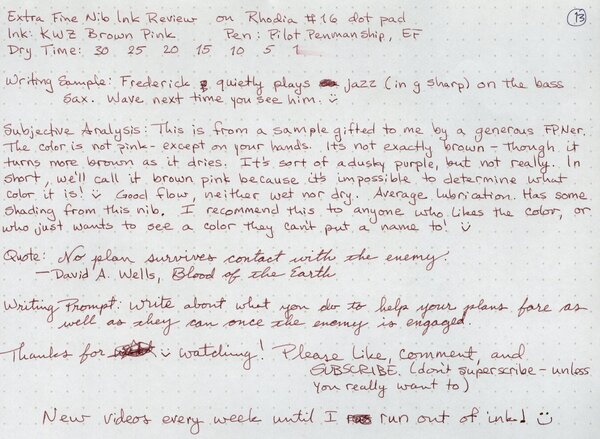 Extra Fine Nib Ink Review on Rhodia #16 dot pad
13
Ink: KWZ Brown Pink Pen: Pilot Penmanship, EF
Dry Time: 30 25 20 15 10 5 1
Writing Sample: Frederick quietly plays jazz (in g sharp) on the bass
sax. Wave next time you see him. :)
Subjective Analysis: This is from a sample gifted to me by a generous FPNer.
The color is not pink - except on your hands. It's not exactly brown - though it
turns more brown as it dries. It's sort of a dusky purple, but not really. In
short, we'll call it brown pink because it's impossible to determine what
color it is! :) Good flow, neither wet nor dry. Average lubrication. Has some
shading from this nib. I recommend this to anyone who likes the color, or
who just wants to see a color they can't put a name to! :)
Quote: No plan survives contact with the enemy.
—David A. Wells, Blood of the Earth
Writing Prompt: Write about what you do to help your plans fare as
well as they can once the enemy is engaged.
Thanks for :) watching! Please Like, comment, and
SUBSCRIBE. (don't superscribe - unless
you really want to)
New videos every week until I run out of ink! :)